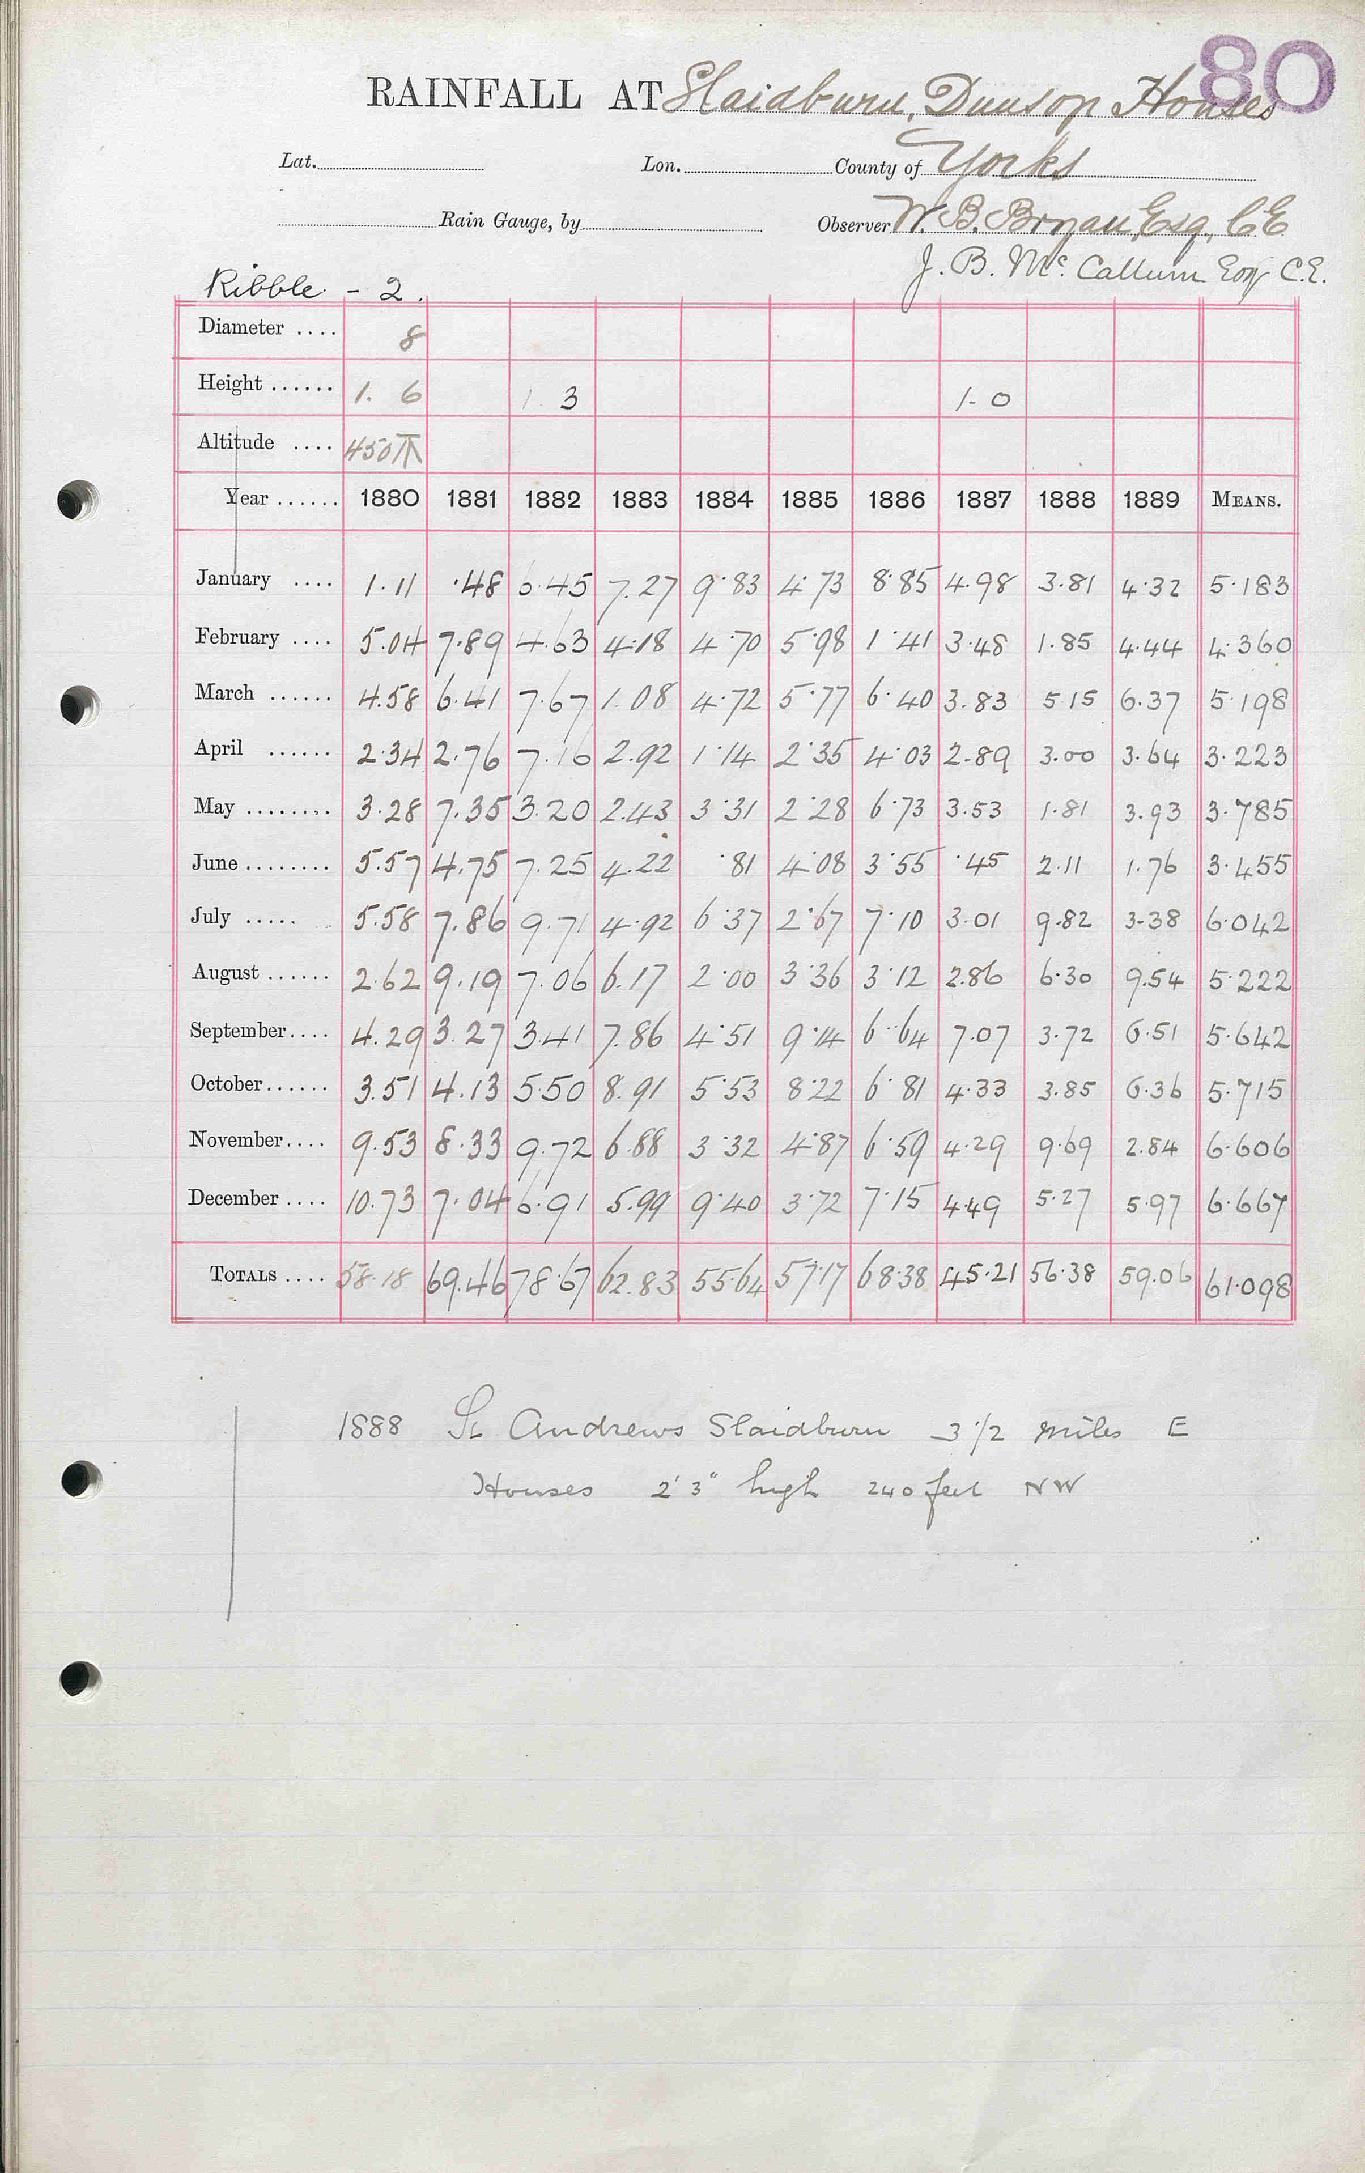 80
RAINFALL AT Slaidburn, Dunsop Houses
Lat. Lon. County of Yorks
Rain Gauge, by Observer W. B. Bryan, Esq., C.E
J. B. Mc. Callum Esq C.E.
Ribble - 2.
Diameter .... 8
Height ...... 1. 6 1 3 1- 0
Altitude .... 450
Year ...... 1880 1881 1882 1883 1884 1885 1886 1887 1888 1889 MEANS.
January .... 1.11 .48 6.45 7.27 9.83 4.73 8.85 4.98 3.81 4.32 5.183
February .... 5.04 7.89 4.63 4.18 4.70 5.98 1.41 3.48 1.85 4.44 4.360
March ...... 4.58 6.41 7.67 1.08 4.72 5.77 6.40 3.83 5.15 6.37 5.198
April ...... 2.34 2.76 7.16 2.92 1.14 2.35 4.03 2.89 3.00 3.64 3.223
May ........ 3.28 7.35 3.20 2.43 3.31 2.28 6.73 3.53 1.81 3.93 3.785
June ........ 5.57 4.75 7.25 4.22 .81 4.08 3.55 .45 2.11 1.76 3.455
July ..... 5.58 7.86 9.71 4.92 6.37 2.67 7.10 3.01 9.82 3.38 6.042
August ...... 2.62 9.19 7.06 6.17 2.00 3.36 3.12 2.86 6.30 9.54 5.222
September .... 4.29 3.27 3.41 7.86 4.51 9.14 6.64 7.07 3.72 6.51 5.642
October ...... 3.51 4.13 5.50 8.91 5.53 8.22 6.81 4.33 3.85 6.36 5.715
November .... 9.53 8.33 9.72 6.88 3.32 4.87 6.59 4.29 9.69 2.84 6.606
December .... 10.73 7.04 6.91 5.99 9.40 3.72 7.15 4.49 5.27 5.97 6.667
TOTALS .... 58.18 69.46 78.67 62.83 55.64 57.17 68.38 45.21 56.38 59.06 61.098
1888 St Andrews Slaidburn 3 1/2 miles E
Houses 2' 3" high 240 feet NW